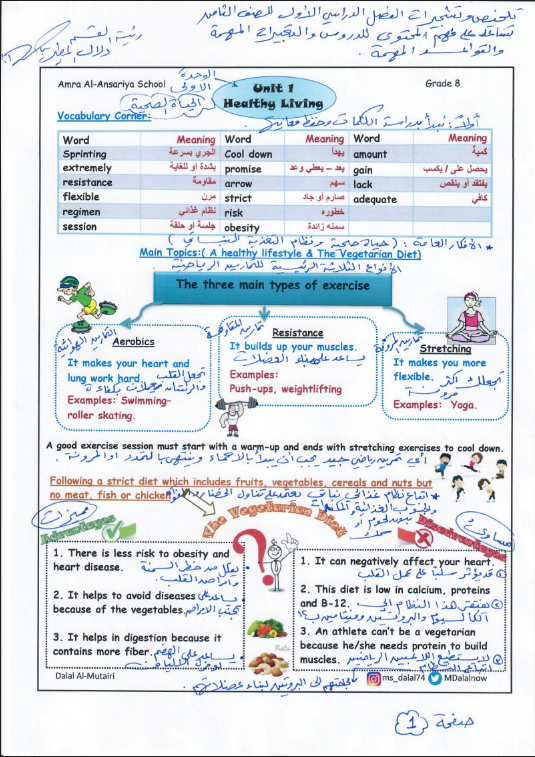 تلخيص وتشجيرات الفصل الدراسي الأول للصف الثامن
تساعد على فهم المحتوى للدروس والتعبيرات المهمة
والقواعد المهمة.
رئيسة القسم
دلال المطيري
Amra Al-Ansariya School
الوحدة الاولى
Unit 1
Healthy Living
Grade 8
الحياة الصحية
Vocabulary Corner:
أولاً: نبدأ بدراسة الكلمات وحفظ معانيها
Word Meaning Word Meaning Word Meaning
Sprinting الجري بسرعة Cool down يهدأ amount كمية
extremely بشدة او للغاية promise يعد – يعطي وعد gain يحصل على / يكسب
resistance مقاومة arrow سهم lack يفتقد او ينقص
flexible مرن strict صارم أو جاد adequate كافي
regimen نظام غذائي risk خطوره
session جلسة او حلقة obesity سمنه زائدة
* الأفكار العامة: (حياة صحية ونظام التغذية النباتي)
Main Topics:( A healthy lifestyle & The Vegetarian Diet)
الأنواع الثلاثة الرئيسية للتمارين الرياضية
The three main types of exercise
التمارين الهوائية
Aerobics
It makes your heart and
lung work hard
تجعل القلب
والرئتان تعملان بكفاءة
Examples: Swimming–
roller skating.
تمارين المقاومة
Resistance
It builds up your muscles.
يساعد على بناء العضلات
Examples:
Push-ups, weightlifting
تمارين المرونة
Stretching
It makes you more
flexible.
تجعلك أكثر
مرونة
Examples: Yoga.
A good exercise session must start with a warm-up and ends with stretching exercises to cool down.
أي تمرين رياضي جيد يجب أن يبدأ بالاحماء وينتهي بالتمدد او المرونة.
Following a strict diet which includes fruits, vegetables, cereals and nuts but
no meat, fish or chicken
* اتباع نظام غذائي نباتي يعتمد على تناول الخضار
بدون لحوم أو
سمك
مميزات
Advantages
The Vegetarian Diet
Disadvantages
مساوئ
1. There is less risk to obesity and
heart disease.
يقلل من خطر السمنة
وامراض القلب.
2. It helps to avoid diseases
يساعد على
because of the vegetables.
تجنب الامراض
3. It helps in digestion because it
contains more fiber.
يساعد على الهضم
1. It can negatively affect your heart.
قد يؤثر سلبياً على عمل القلب
2. This diet is low in calcium, proteins
and B-12.
يفتقر هذا النظام إلى
الكالسيوم والبروتين وفيتامين ب١٢
3. An athlete can't be a vegetarian
because he/she needs protein to build
muscles.
لا يستطيع اللاعبين الرياضيين
Nuts
لحاجتهم إلى البروتين لبناء عضلاتهم.
Dalal Al-Mutairi
ms_dalal74
MDalalnow
صفحة 1